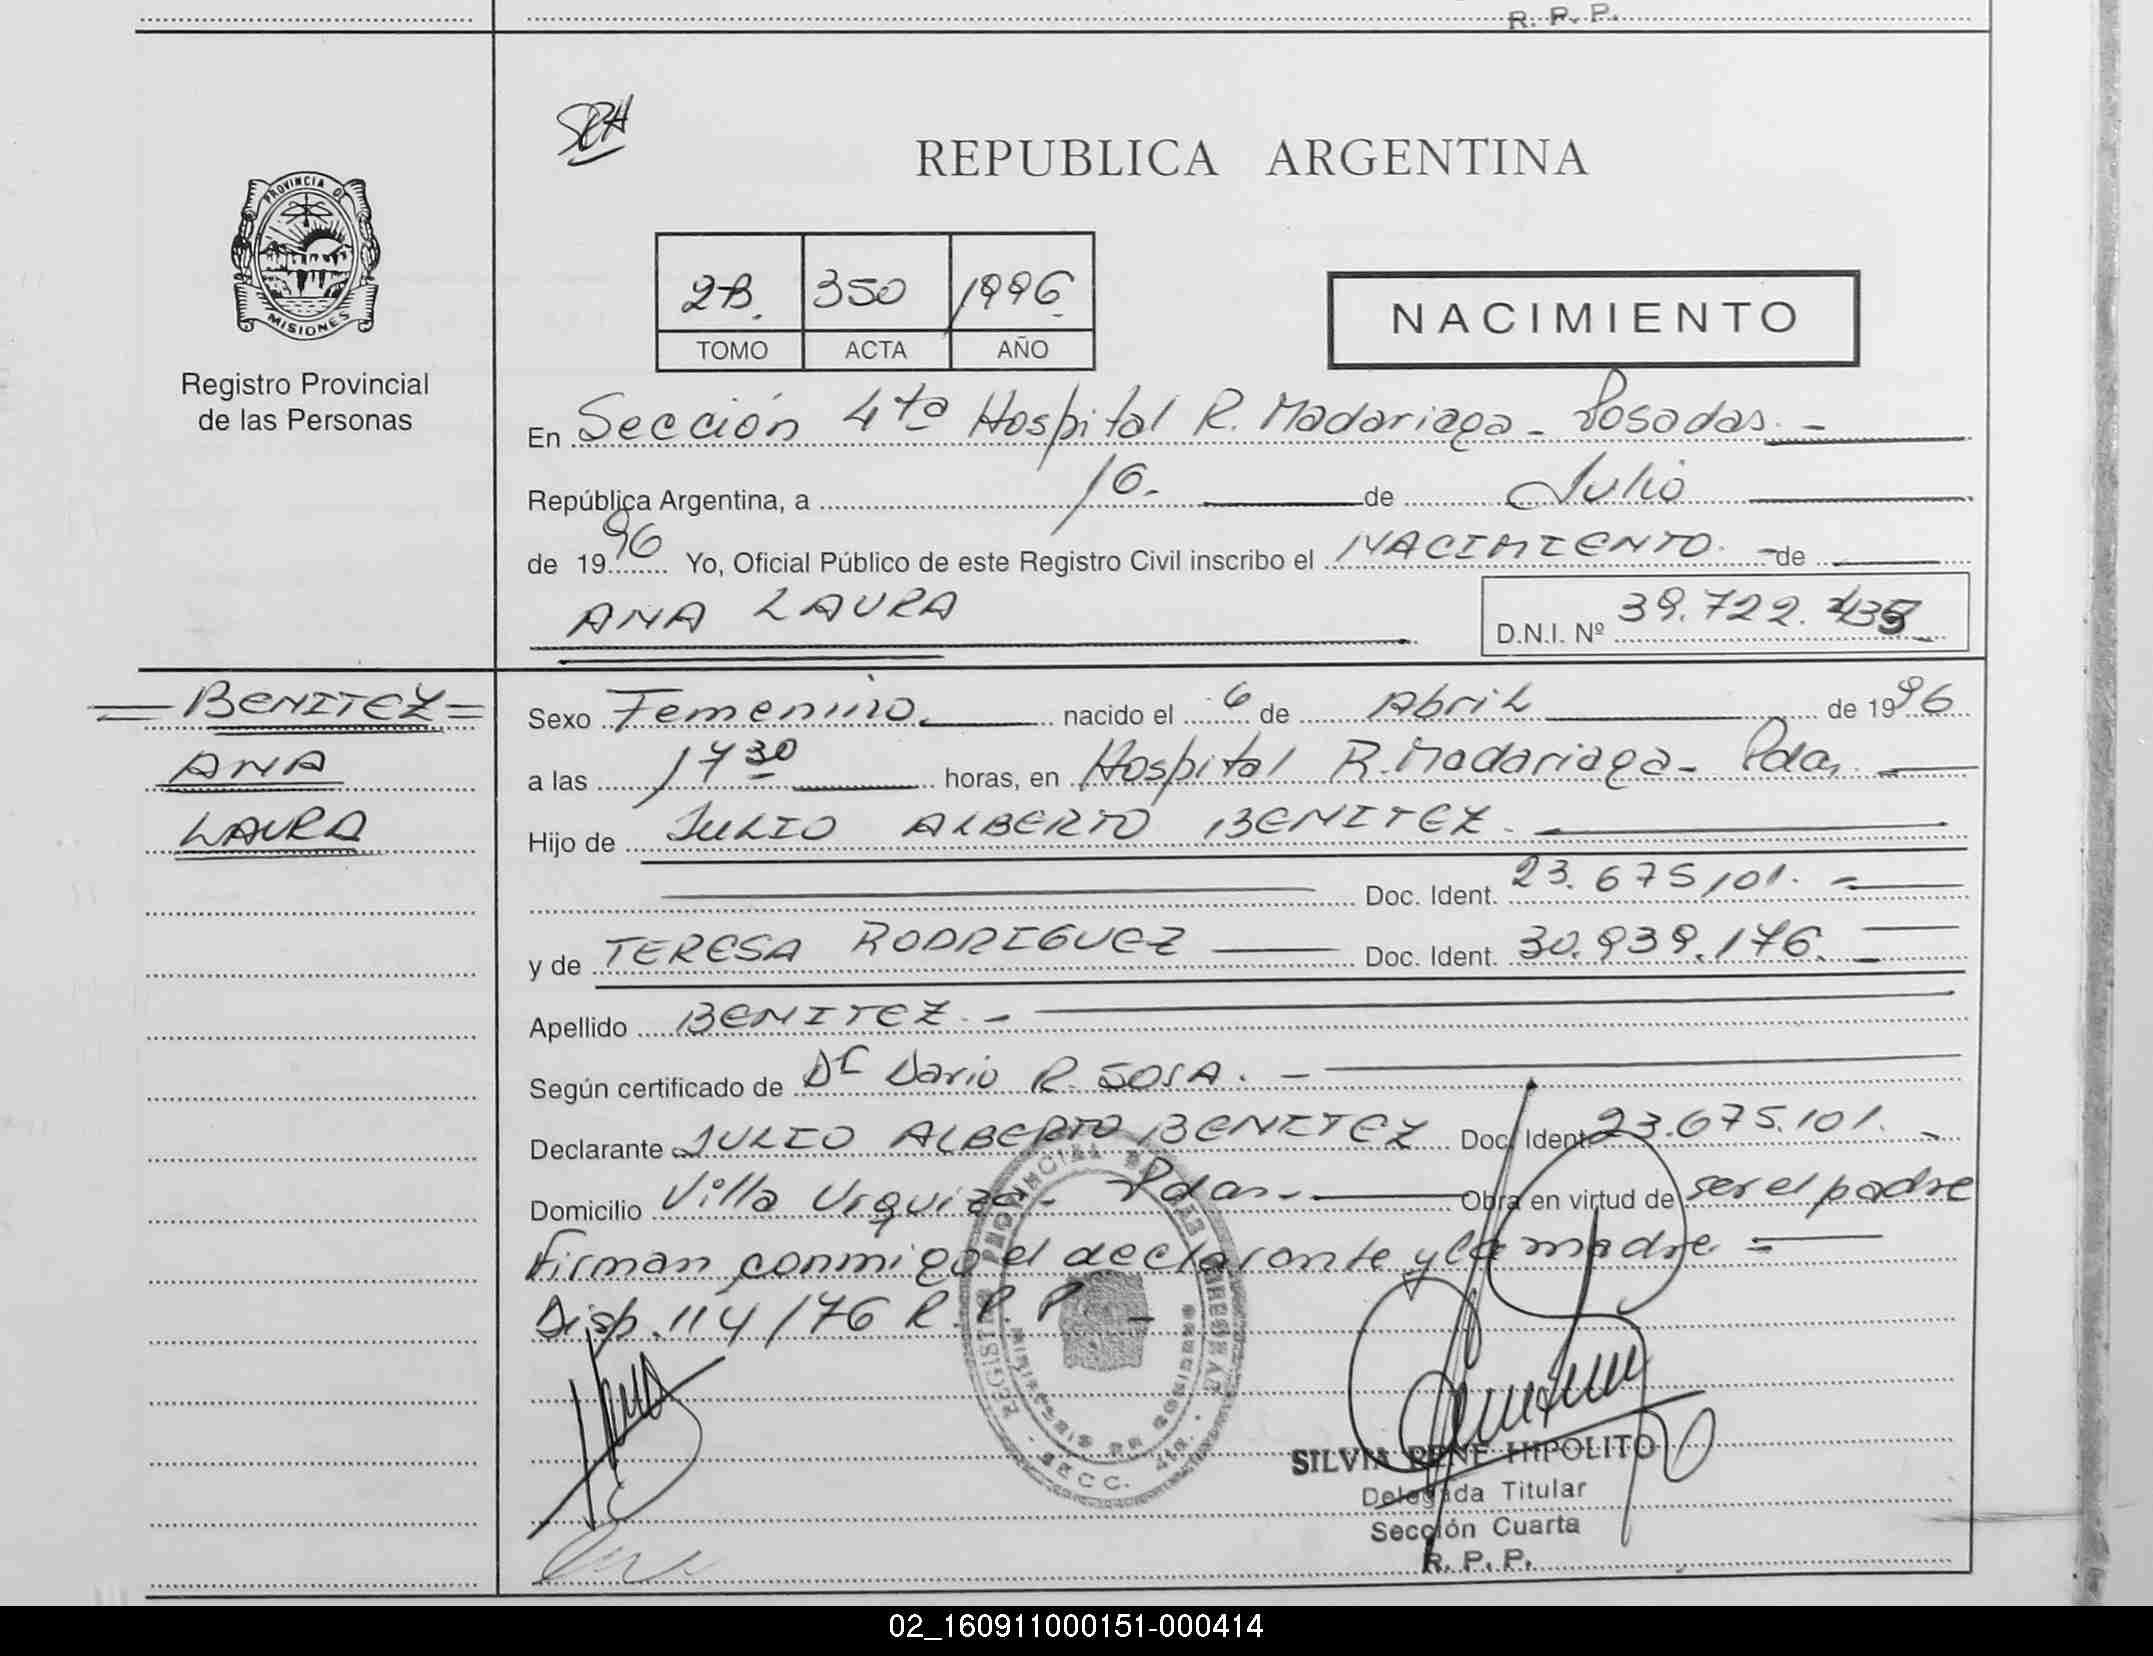 R. P. P.
REPUBLICA ARGENTINA
PROVINCIA DE
MISIONES
Registro Provincial
de las Personas
2B. 350 1996
TOMO ACTA AÑO
NACIMIENTO
En Sección 4ta Hospital R. Madariaga - Posadas. -
República Argentina, a 16. de Julio
de 1996 Yo, Oficial Público de este Registro Civil inscribo el NACIMIENTO. - de
ANA LAURA
D.N.I. Nº 39.722.
= BENITEZ =
ANA
LAURA
Sexo Femenino nacido el 6 de Abril de 1996
a las 17 30 horas, en Hospital R. Madariaga - Pdas. -
Hijo de JULIO ALBERTO BENITEZ. -
Doc. Ident. 23.675.101. -
y de TERESA RODRIGUEZ Doc. Ident. 30.939.176. -
Apellido BENITEZ. -
Según certificado de Dr Dario R. SOSA. -
Declarante JULIO ALBERTO BENITEZ Doc. Ident. 23.675.101. -
Domicilio Villa Urquiza - Pdas. - Obra en virtud de ser el padre
Firman conmigo el declarante y la madre =
Disp. 114/76 R. P. P. -
SILVIA RENE HIPOLITO
Delegada Titular
Sección Cuarta
R. P. P.
02_160911000151-000414